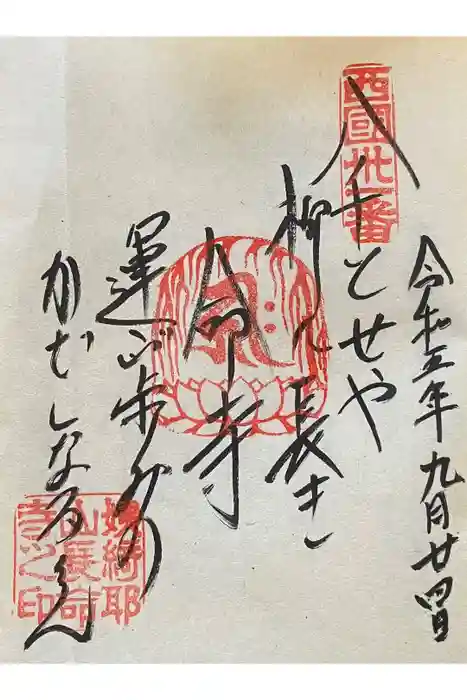 令和五年九月廿四日
西國卅一番
八千とせや
柳に長き
命寺
運ぶ歩みの
かざしなるらん
姨綺耶
山長命
寺之印